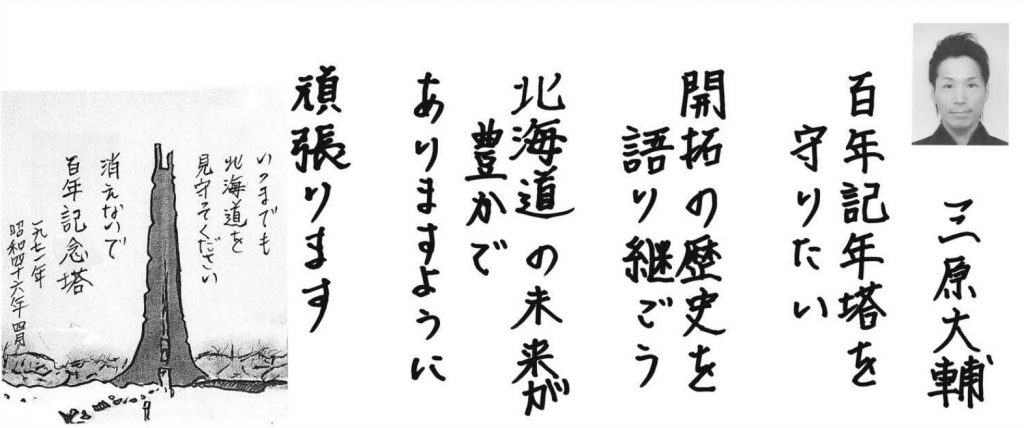 三原大輔
百年記年塔を
守りたい
開拓の歴史を
語り継ごう
北海道の未来が
豊かで
ありますように
頑張ります
いつまでも
北海道を
見守ってください
消えないで
百年記念塔
一九七一年
昭和四十六年 四月